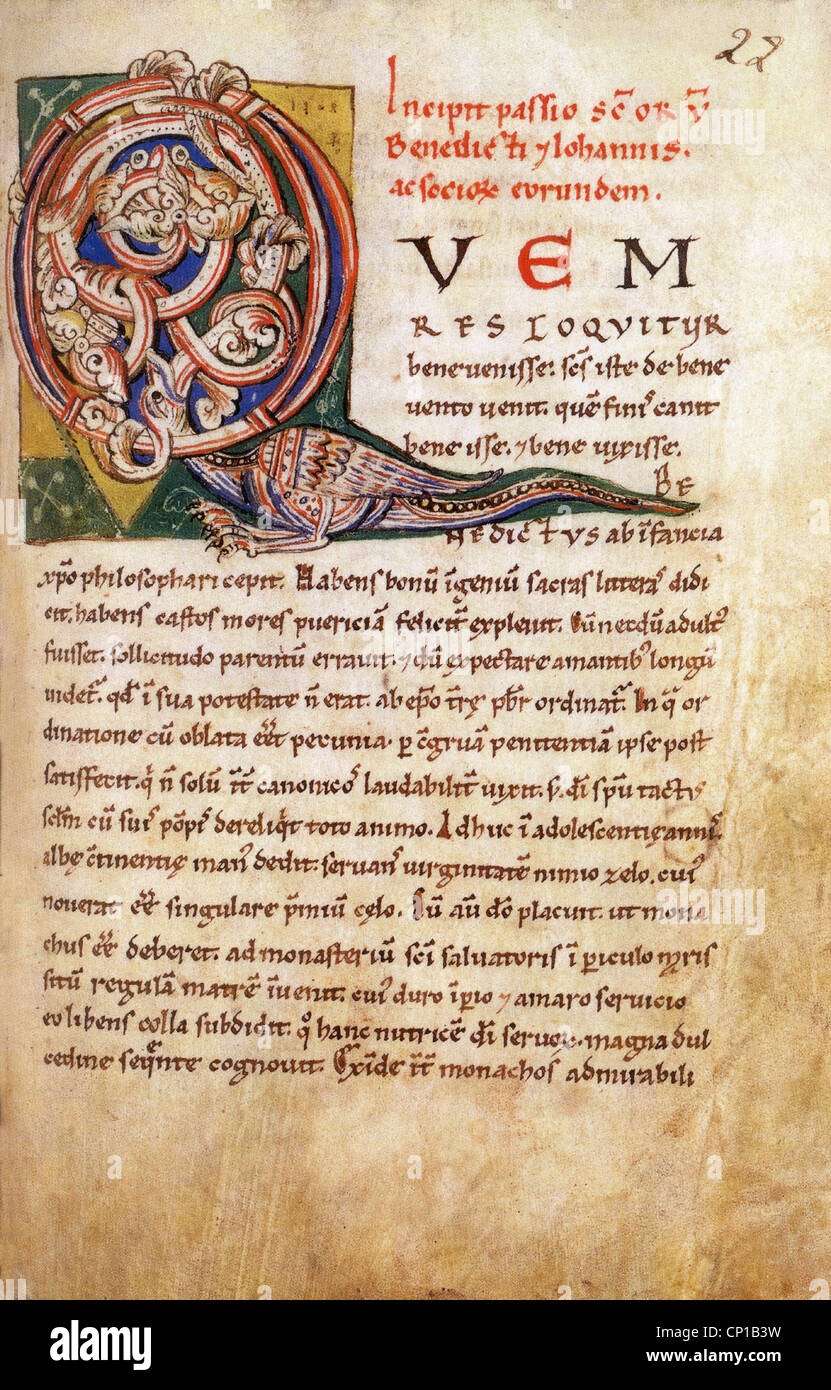 22
Incipit passio sc̄oꝝ
Benedicti ⁊ Iohannis.
ac socioꝝ eorundem.
VEM
RES LOQVITVR
bene venisse. sc̄s iste de bene
vento venit. quē finis canit
bene isse. ⁊ bene vixisse.
BE
NEDICTVS ab īfancia
xp̄o philosophari cepit. Habens bonū īgeniū sacras litteras didi
cit. habens castos mores puericiā felicit̄ explevit. Cū necdū adultꝰ
fuisset. sollicitudo parentū erravit. ⁊ dū expectare amantibꝰ longū
videt̄. qd̄ ī sua potestate n̄ erat. ab ep̄o t̄rę pb̄r ordinat̄. In qͣ or
dinatione cū oblata eēt pecunia. p c̄gruā penitentiā ipse post
satisfecit. n̄ solū īt̄ canonicos laudabilit̄ vixit. s; dī sp̄u tactꝰ
scl̄m cū suis pōpis dereliqͥt toto animo. Adhuc ī adolescentię annis
albę c̄tinentię manꝰ dedit. servans virginitatē nimio zelo. cuiꝰ
noverat eēē singulare p̄miū cęlo. Cū aū dō placuit. ut mona
chus eēē deberet. ad monasteriū scī salvatoris ī piculo maris
sitū regulā matrē īvenit. cuiꝰ duro īpio ⁊ amaro servicio
eo libens colla subdidit. qͦ hanc nutricē dī servoꝝ. magna dul
cedine seqͤnte cognovit. Exīde īt̄ monachos admirabili
alamy
Image ID: CP1B3W
www.alamy.com